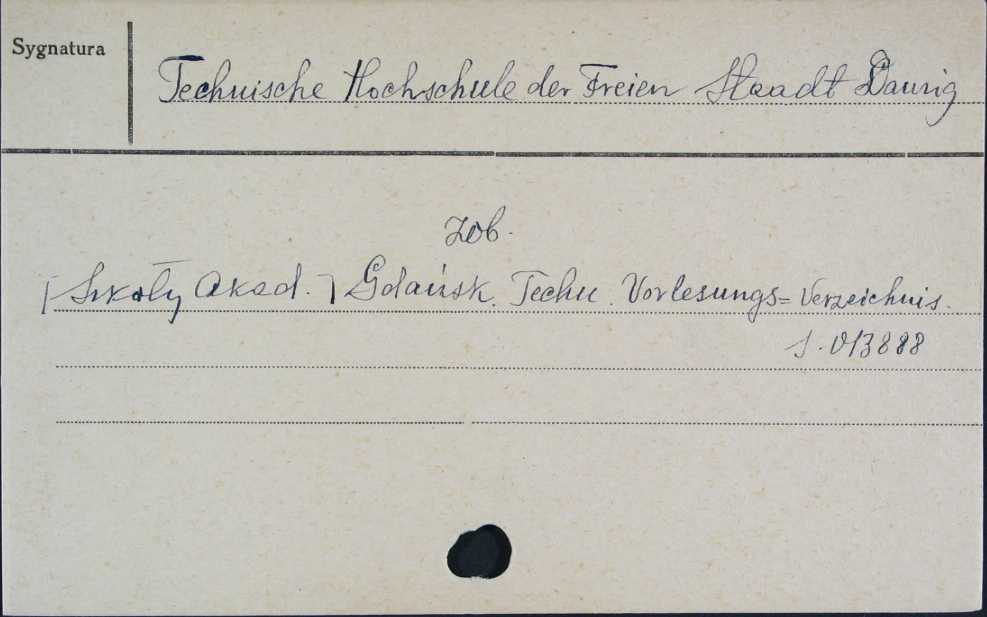 Sygnatura
Technische Hochschule der Freien Staadt Danzig
zob.
[Szkoły Akad.] Gdańsk. Techn. Vorlesungs=Verzeichnis.
J. 013888